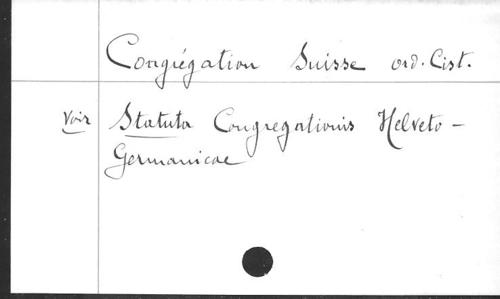 Congrégation Suisse ord. Cist.
Voir Statuta Congregationis Helveto-
Germanicae